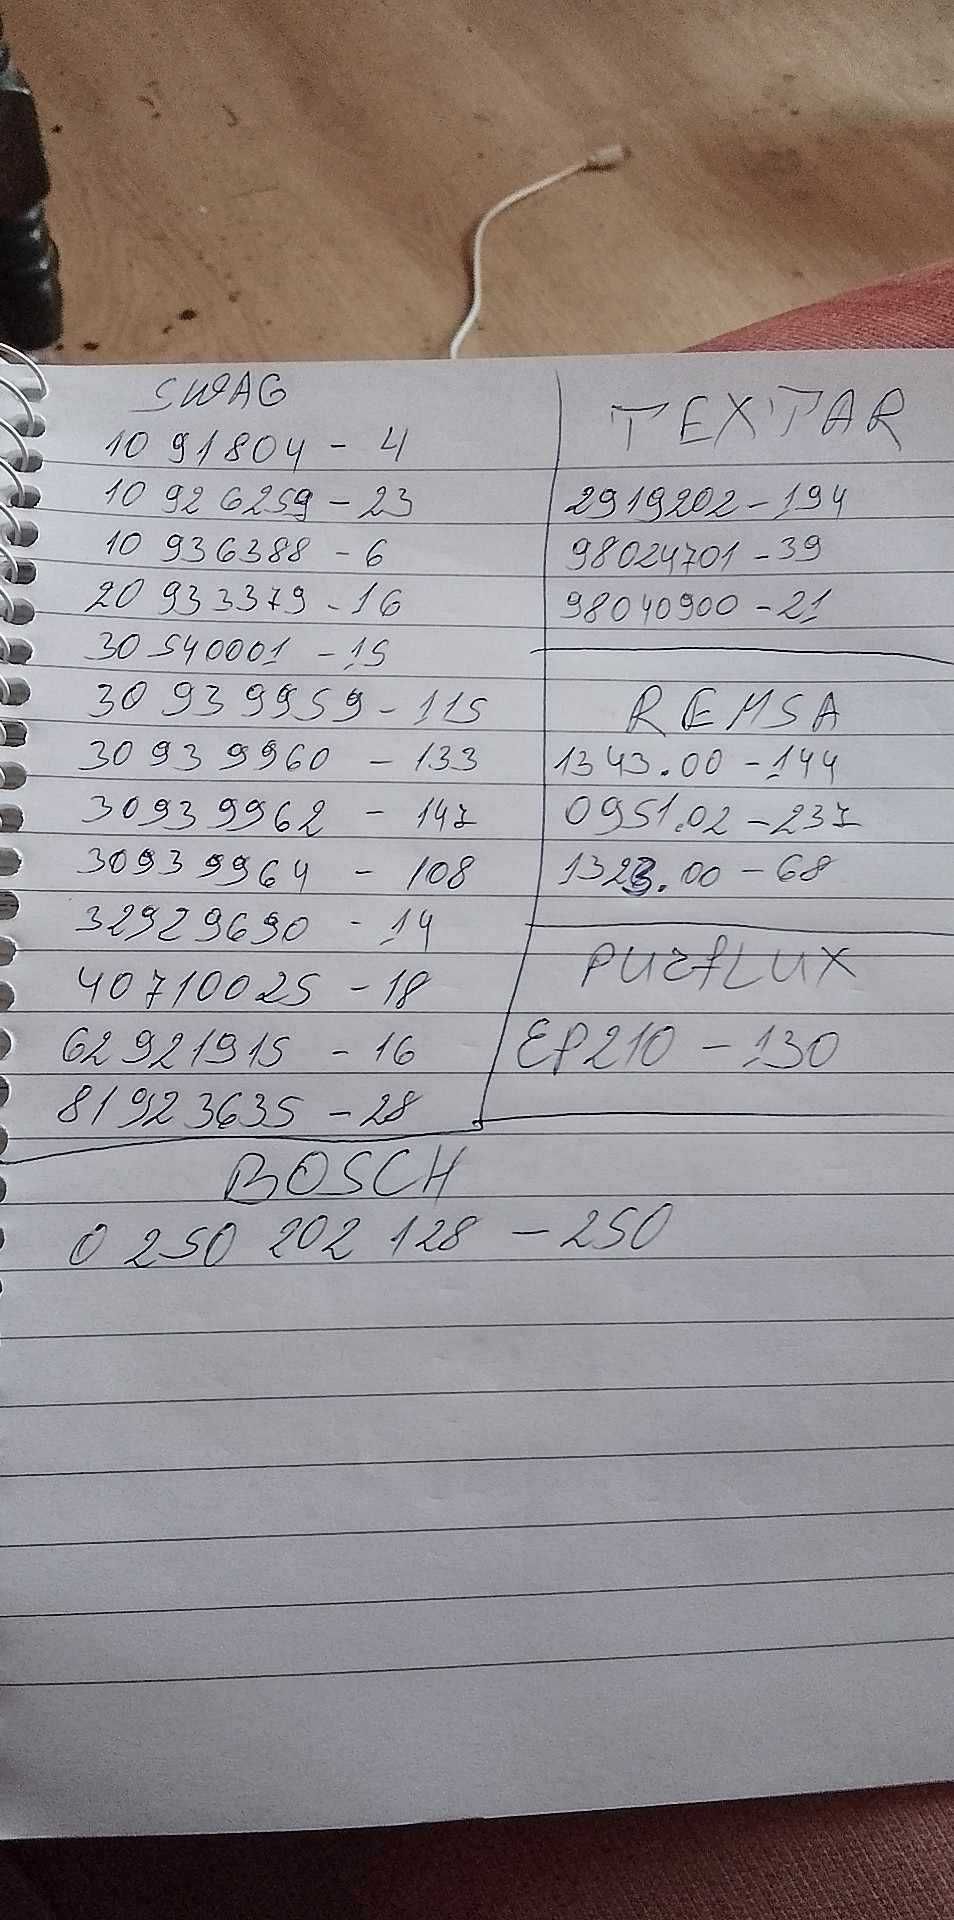 SWAG
10 91804 - 4
10 926259 - 23
10 936388 - 6
20 933379 - 16
30 540001 - 15
30 939959 - 115
30939960 - 133
30939962 - 147
30939964 - 108
32929690 - 14
40710025 - 18
62921915 - 16
81923635 - 28
TEXTAR
2919202 - 194
98024701 - 39
98040900 - 21
REMSA
1343.00 - 144
0951.02 - 237
1323.00 - 68
PURfLUX
EP210 - 130
BOSCH
0 250 202 128 - 250